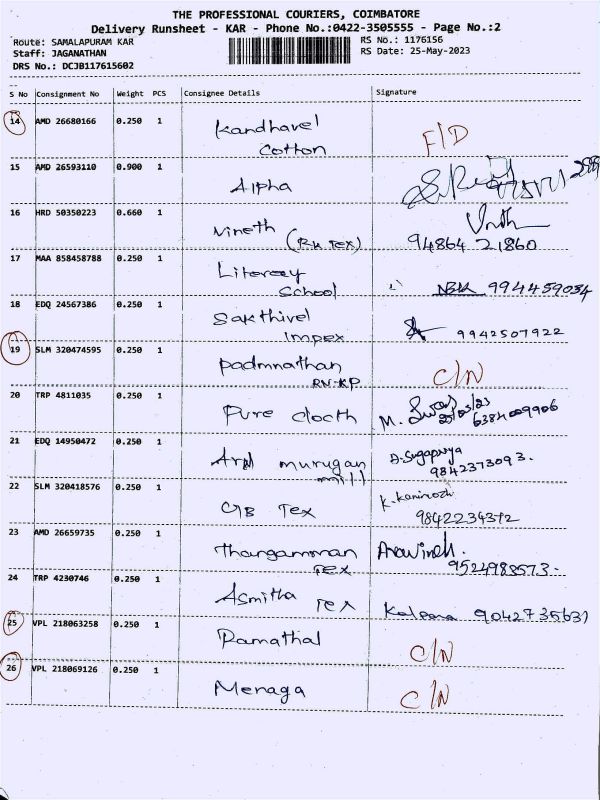 THE PROFESSIONAL COURIERS, COIMBATORE
Delivery Runsheet - KAR - Phone No.:0422-3505555 - Page No.:2
Route: SAMALAPURAM KAR
RS No.: 1176156
Staff: JAGANATHAN
RS Date: 25-May-2023
DRS No.: DCJB117615602
S No Consignment No Weight PCS Consignee Details Signature
14 AMD 26680166 0.250 1
Kandhavel F/D
Cotton
15 AMD 26593110 0.900 1
Alpha
16 HRD 50350223 0.660 1
Vineth (RK Tex) 94864 21860
17 MAA 858458788 0.250 1
Literacy
School 9944459034
18 EDQ 24567386 0.250 1
Sakthivel
Impex 9942507922
19 SLM 320474595 0.250 1
Padmnathan C/N
RN-KP
20 TRP 4811035 0.250 1
Pure cloth M. 25/03/23
6384009906
21 EDQ 14950472 0.250 1
Arul murugan
mill 9842373093.
22 SLM 320418576 0.250 1
GB Tex 9842234372
23 AMD 26659735 0.250 1
Thangamman Aravindh.
Tex 9524988573.
24 TRP 4230746 0.250 1
Asmitha Tex Kalpana 9042735631
25 VPL 218063258 0.250 1
Ramathal C/N
26 VPL 218069126 0.250 1
Menaga C/N